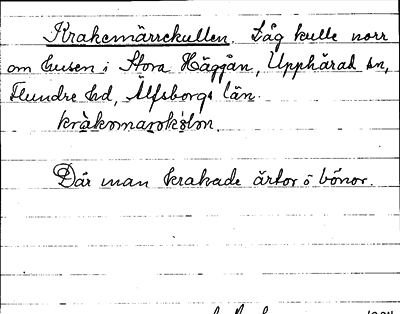 Krakemärrekullen. Låg kulle norr
om husen i Stora Häggån, Upphärad sn,
Flundre hd, Älfsborgs län.
kràkəmarəkɵlən.
Där man krakade ärtor o bönor.